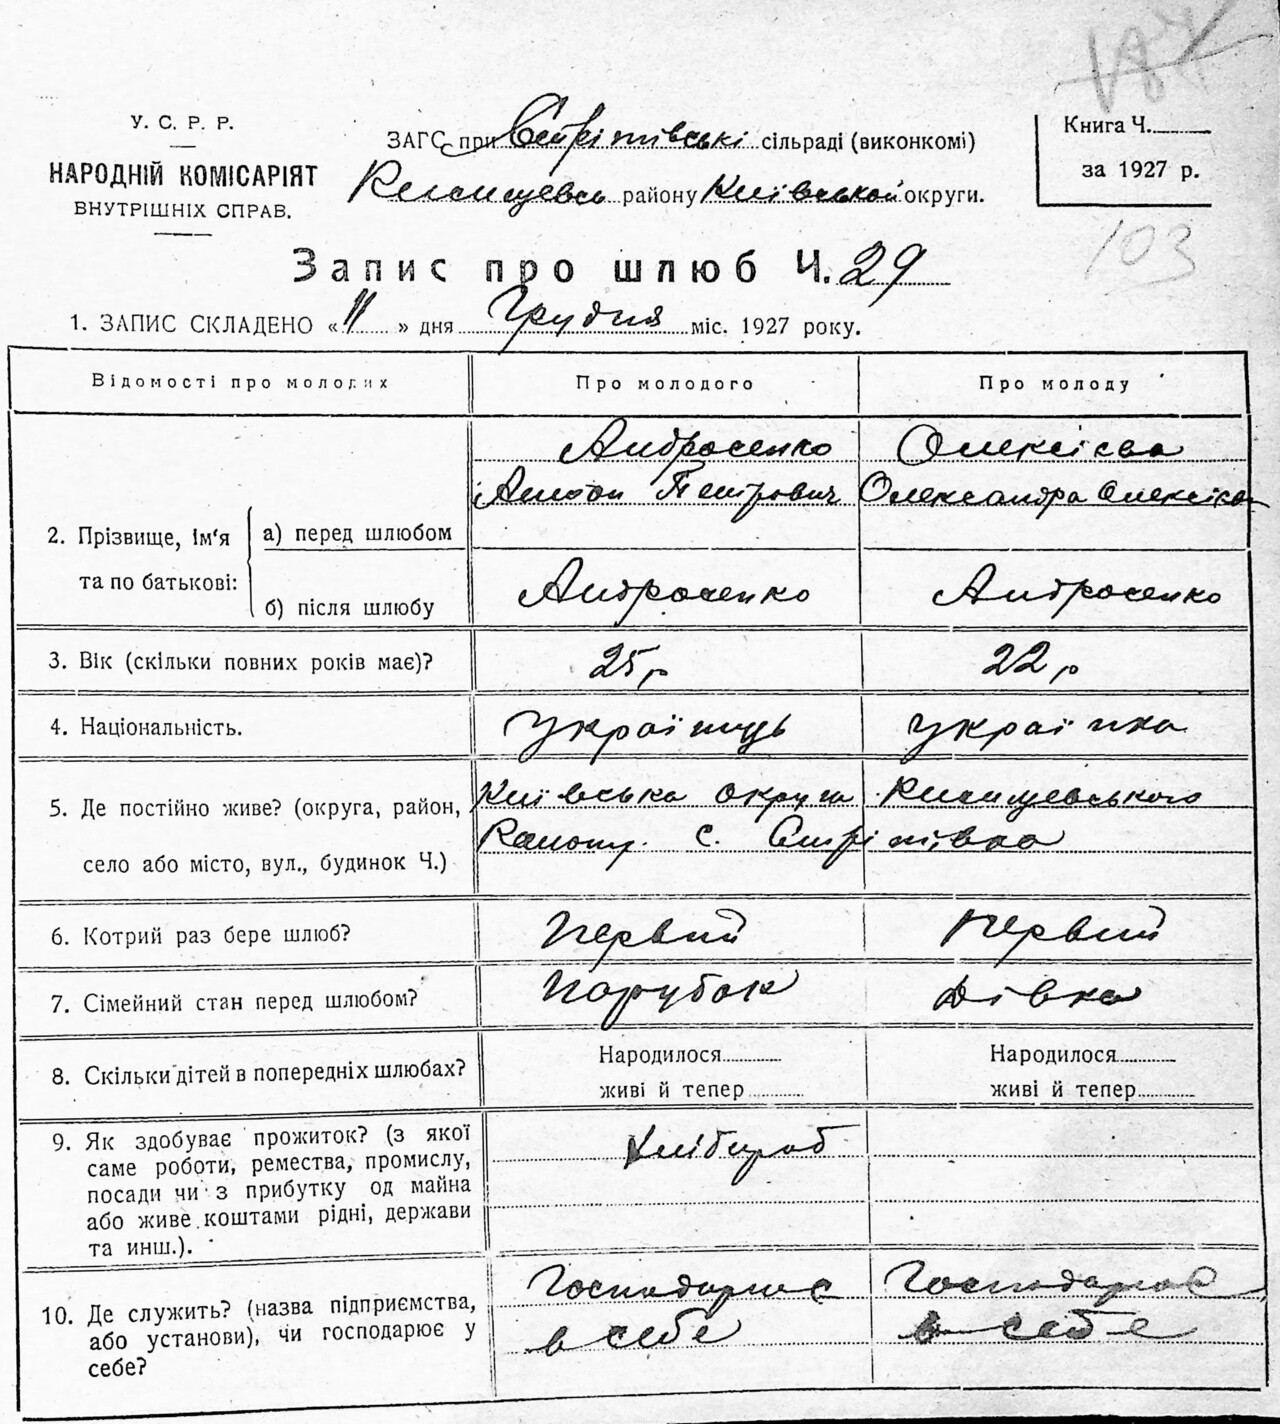 У. С. Р. Р.
НАРОДНІЙ КОМІСАРІЯТ
ВНУТРІШНІХ СПРАВ.
ЗАГС при Стрітівські сільраді (виконкомі)
Кагищевсь району Київської округи.
Книга Ч.
за 1927 р.
103
Запис про шлюб Ч. 29
1. ЗАПИС СКЛАДЕНО «11» дня Грудня міс. 1927 року.
Відомості про молодих Про молодого Про молоду
2. Прізвище, ім'я та по батькові:
а) перед шлюбом
Андросенко Олексієва
Антон Петрович Олександра Олексієв
б) після шлюбу Андросенко Андросенко
3. Вік (скільки повних років має)? 25 р 22 р
4. Національність. Українець Українка
5. Де постійно живе? (округа, район, Київська округа Кагищевського
село або місто, вул., будинок Ч.) Району. с. Стрітівка
6. Котрий раз бере шлюб? Первий Первий
7. Сімейний стан перед шлюбом? Парубок Дівка
8. Скільки дітей в попередніх шлюбах? Народилося Народилося
живі й тепер живі й тепер
9. Як здобуває прожиток? (з якої Хлібороб
саме роботи, ремества, промислу,
посади чи з прибутку од майна
або живе коштами рідні, держави
та инш.).
10. Де служить? (назва підприємства, Господарює Господарює
або установи), чи господарює у в себе в себе
себе?